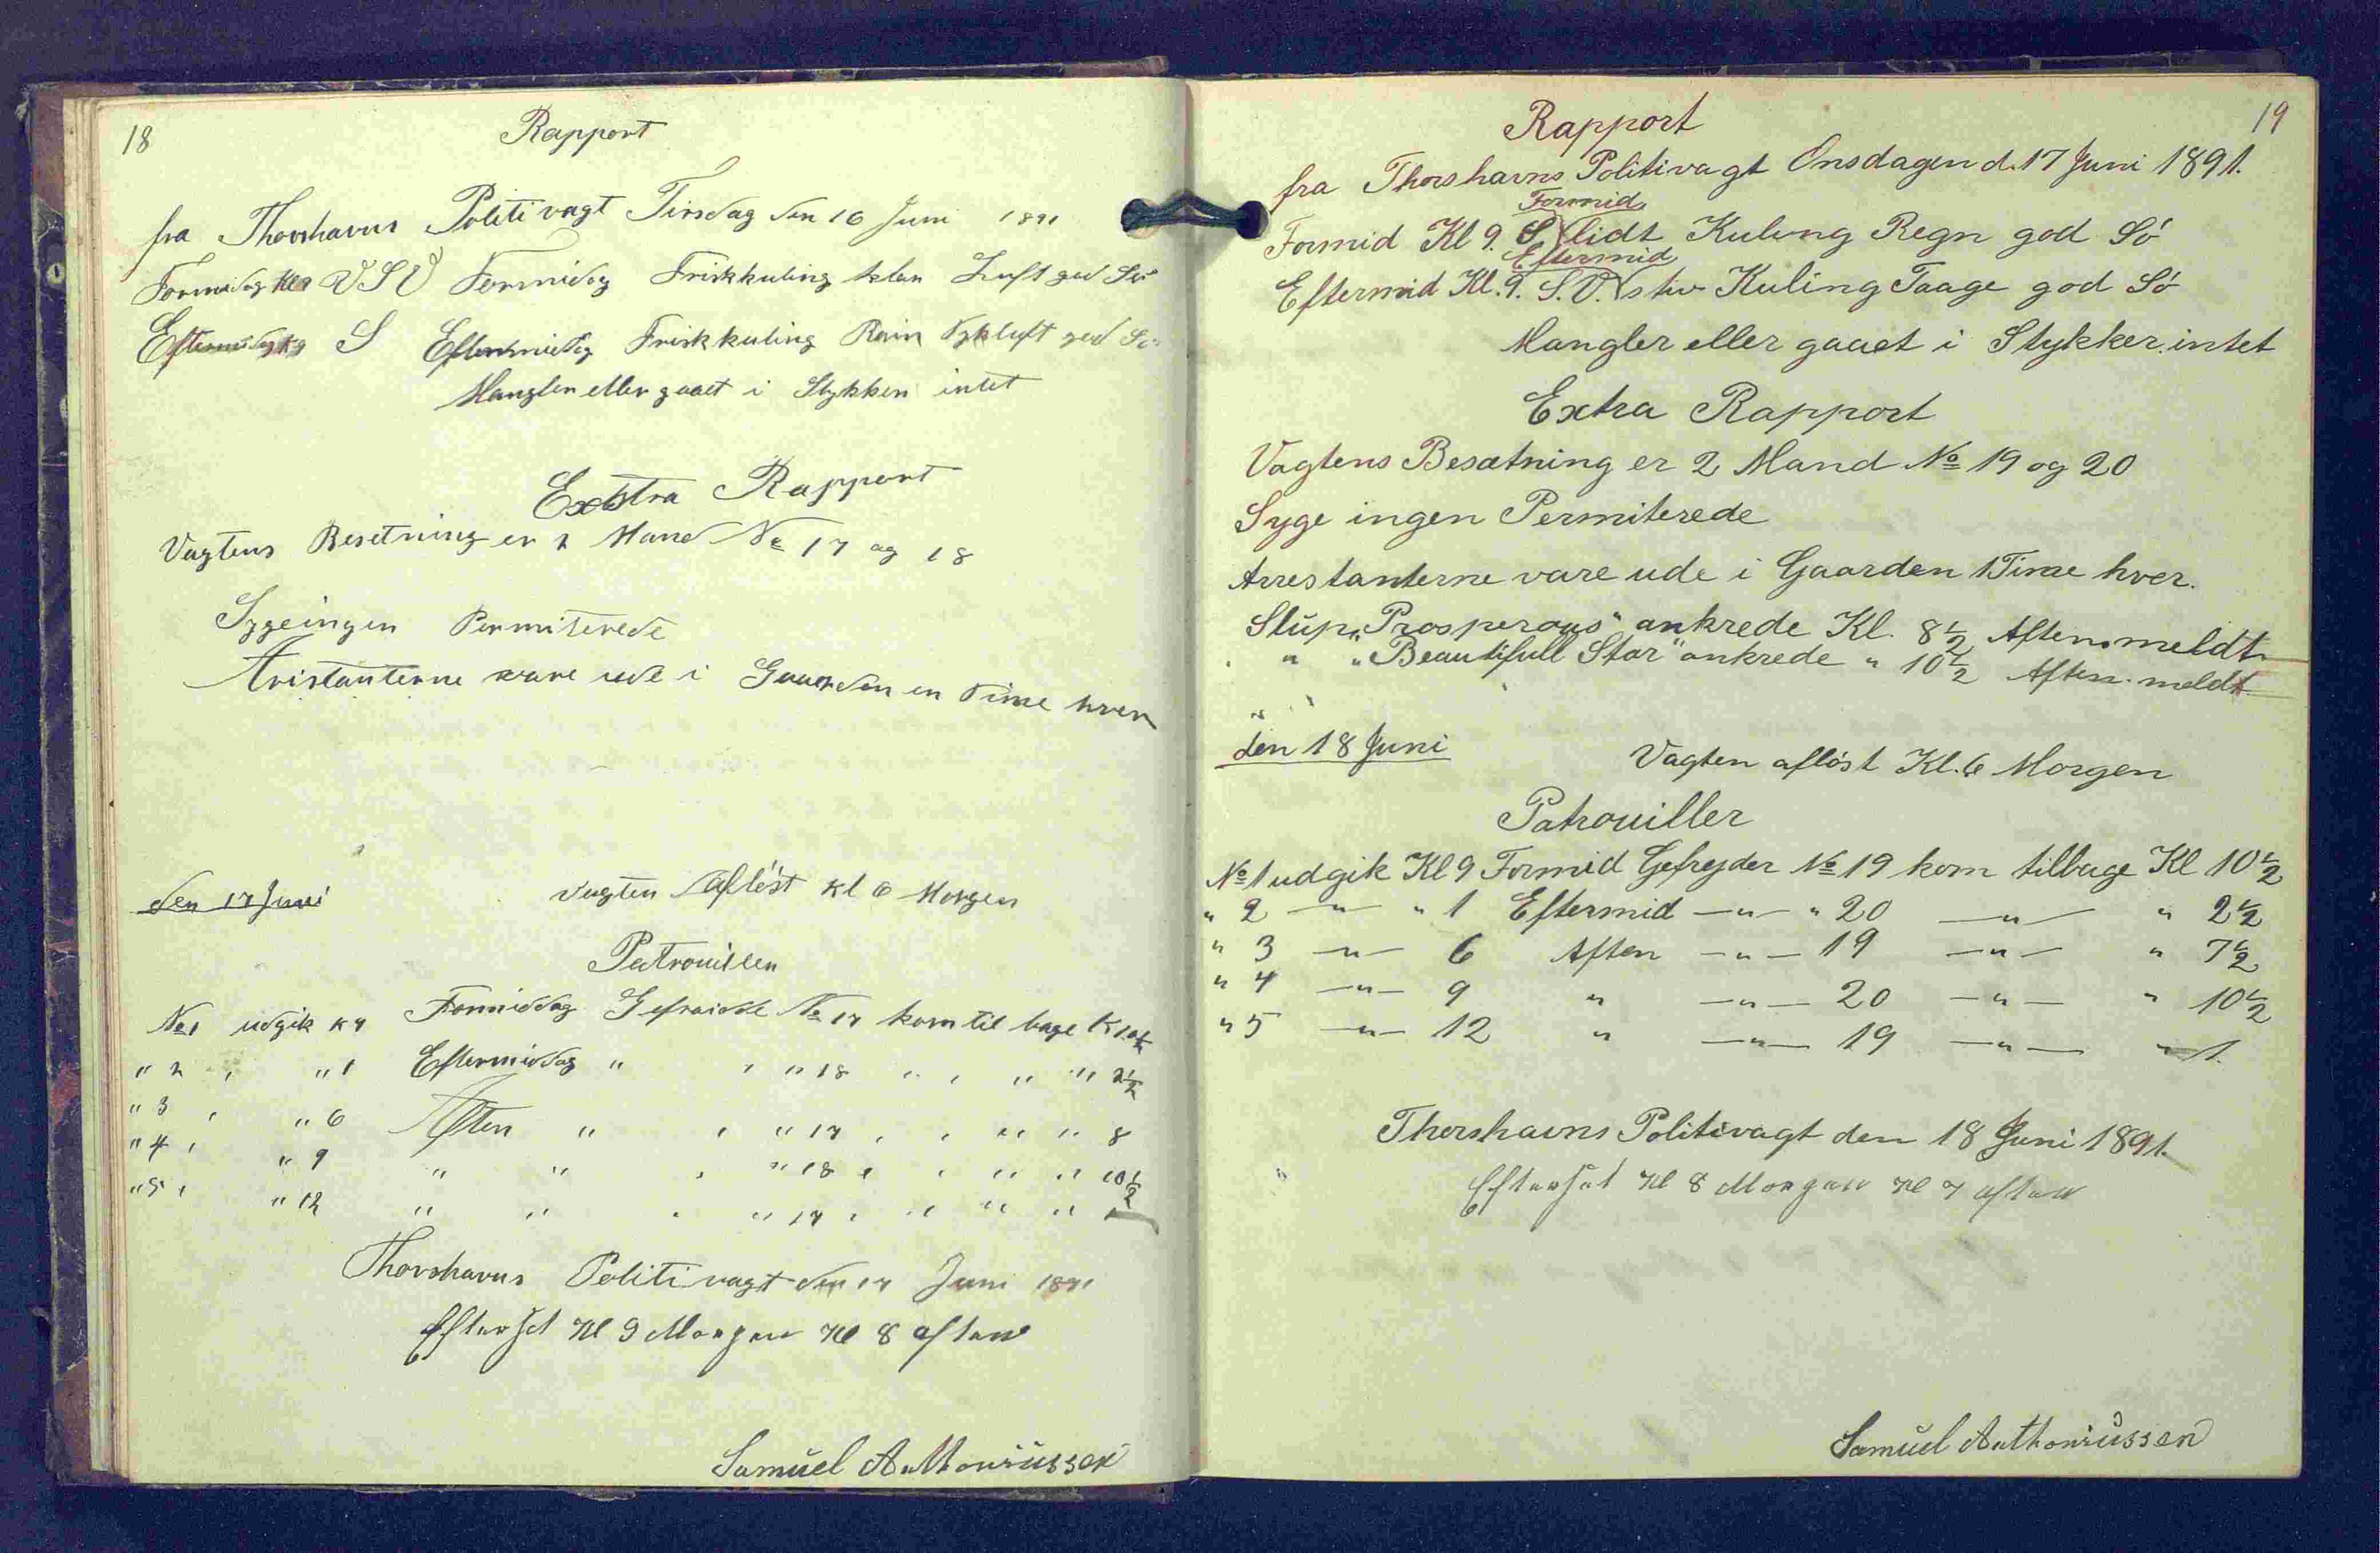 18
Rapport
fra Thorshavns Politivagt Tirsdag den 16 Juni 1891
Formidag Kl 9 VSV Formidag Friskkuling klar Luft god Sø
Eftermidag K 9 S Eftermidag Friskkuling Rein Tykluft god Sø
Mangler eller gaaet i Stykker intet
Exstra Rapport
Vagtens Besetning er 2 Mand No 17 og 18
Syge ingen Permiterede
Aristanterne vare ude i Gaarden en Time hver
den 17 Juni Vagten afløst Kl 6 Morgen
Patrouiller
No 1 udgik K 9 Formiddag Gefraidde No 17 kom til bage K 10½
" 2 , " 1 Eftermiddag " , " 18 " , " " 2½
" 3 , " 6 Aften " , " 17 , , " " 8
" 4 , " 9 " " , " 18 , , " " 10½
" 5 , " 12 " " , " 17 , " " " 1
Thorshavns Politivagt den 17 Juni 1891
Efterset Kl 9 Morgen Kl 8 aften
Samuel Anthoniussen
19
Rapport
fra Thorshavns Politivagt Onsdagen d. 17 Juni 1891.
Formid
Formid Kl 9. S lidt Kuling Regn god Sö
Eftermid
Eftermid Kl. 9. S.V. stiv Kuling Taage god Sö
Mangler eller gaaet i Stykker intet
Extra Rapport
Vagtens Besætning er 2 Mand No 19 og 20
Syge ingen Permiterede
Arrestanterne vare ude i Gaarden 1 Time hver.
Slup „Prosperous" ankrede Kl. 8½ Aften. meldt
" „Beautifull Star" ankrede " 10½ Aften. meldt
den 18 Juni Vagten aflöst Kl. 6 Morgen
Patrouiller
No 1 udgik Kl 9 Formid Gefrejder No 19 kom tilbage Kl 10½
" 2 —"— " 1 Eftermid —"— " 20 —"— " 2½
" 3 —"— 6 Aften —"— 19 —"— " 7½
" 4 —"— 9 " —"— 20 —"— " 10½
" 5 —"— 12 " —"— 19 —"— " 1.
Thorshavns Politivagt den 18 Juni 1891.
Efterset Kl 8 Morgen Kl 7 aften
Samuel Anthoniussen